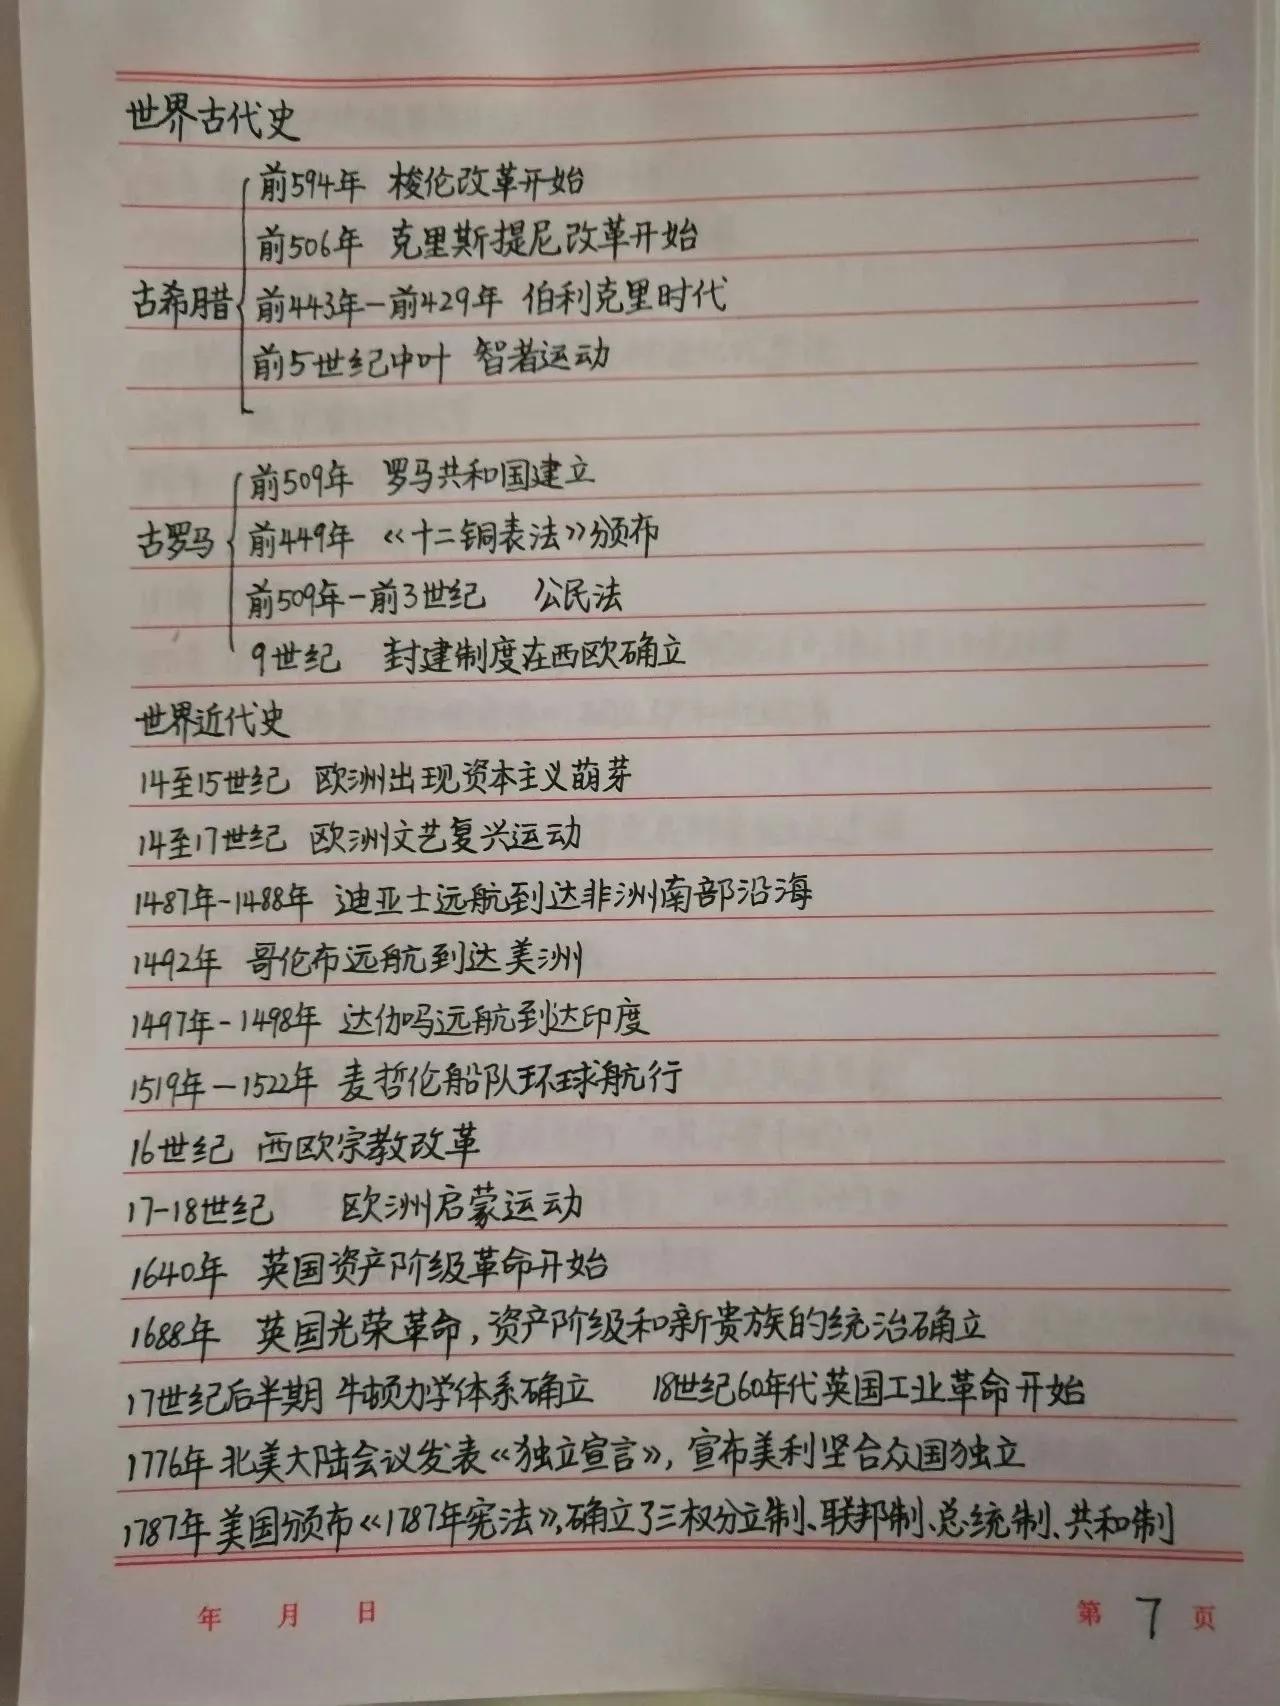 世界古代史
前594年 梭伦改革开始
前506年 克里斯提尼改革开始
古希腊 前443年-前429年 伯利克里时代
前5世纪中叶 智者运动
前509年 罗马共和国建立
古罗马 前449年 《十二铜表法》颁布
前509年-前3世纪 公民法
9世纪 封建制度在西欧确立
世界近代史
14至15世纪 欧洲出现资本主义萌芽
14至17世纪 欧洲文艺复兴运动
1487年-1488年 迪亚士远航到达非洲南部沿海
1492年 哥伦布远航到达美洲
1497年-1498年 达伽吗远航到达印度
1519年-1522年 麦哲伦船队环球航行
16世纪 西欧宗教改革
17-18世纪 欧洲启蒙运动
1640年 英国资产阶级革命开始
1688年 英国光荣革命,资产阶级和新贵族的统治确立
17世纪后半期 牛顿力学体系确立 18世纪60年代英国工业革命开始
1776年 北美大陆会议发表《独立宣言》,宣布美利坚合众国独立
1787年 美国颁布《1787年宪法》,确立了三权分立制、联邦制、总统制、共和制
年 月 日 第 7 页